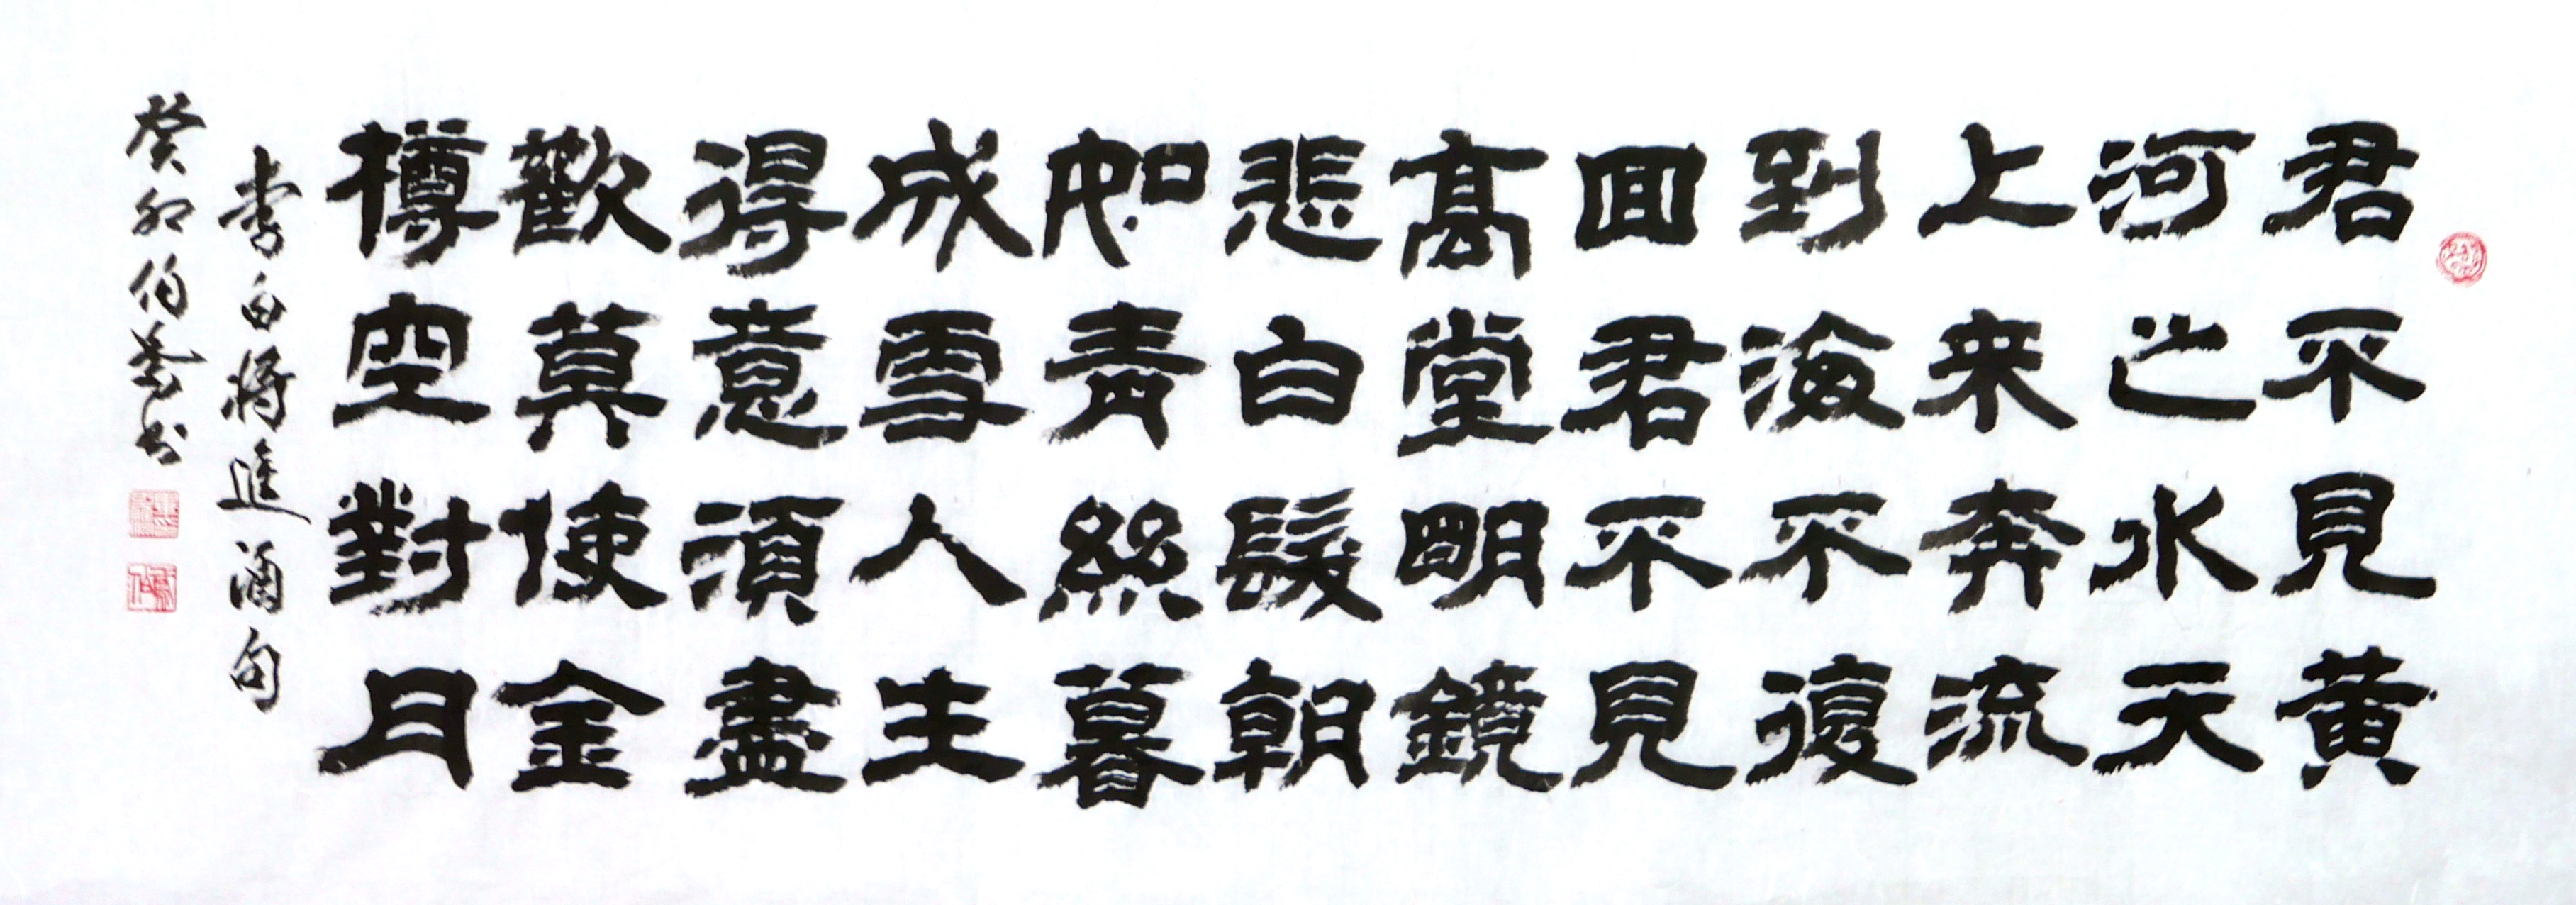 君不見黄
河之水天
上来奔流
到海不復
回君不見
高堂明鏡
悲白髮朝
如青絲暮
成雪人生
得意須盡
歡莫使金
樽空對月
李白将進酒句
癸卯伯苓书